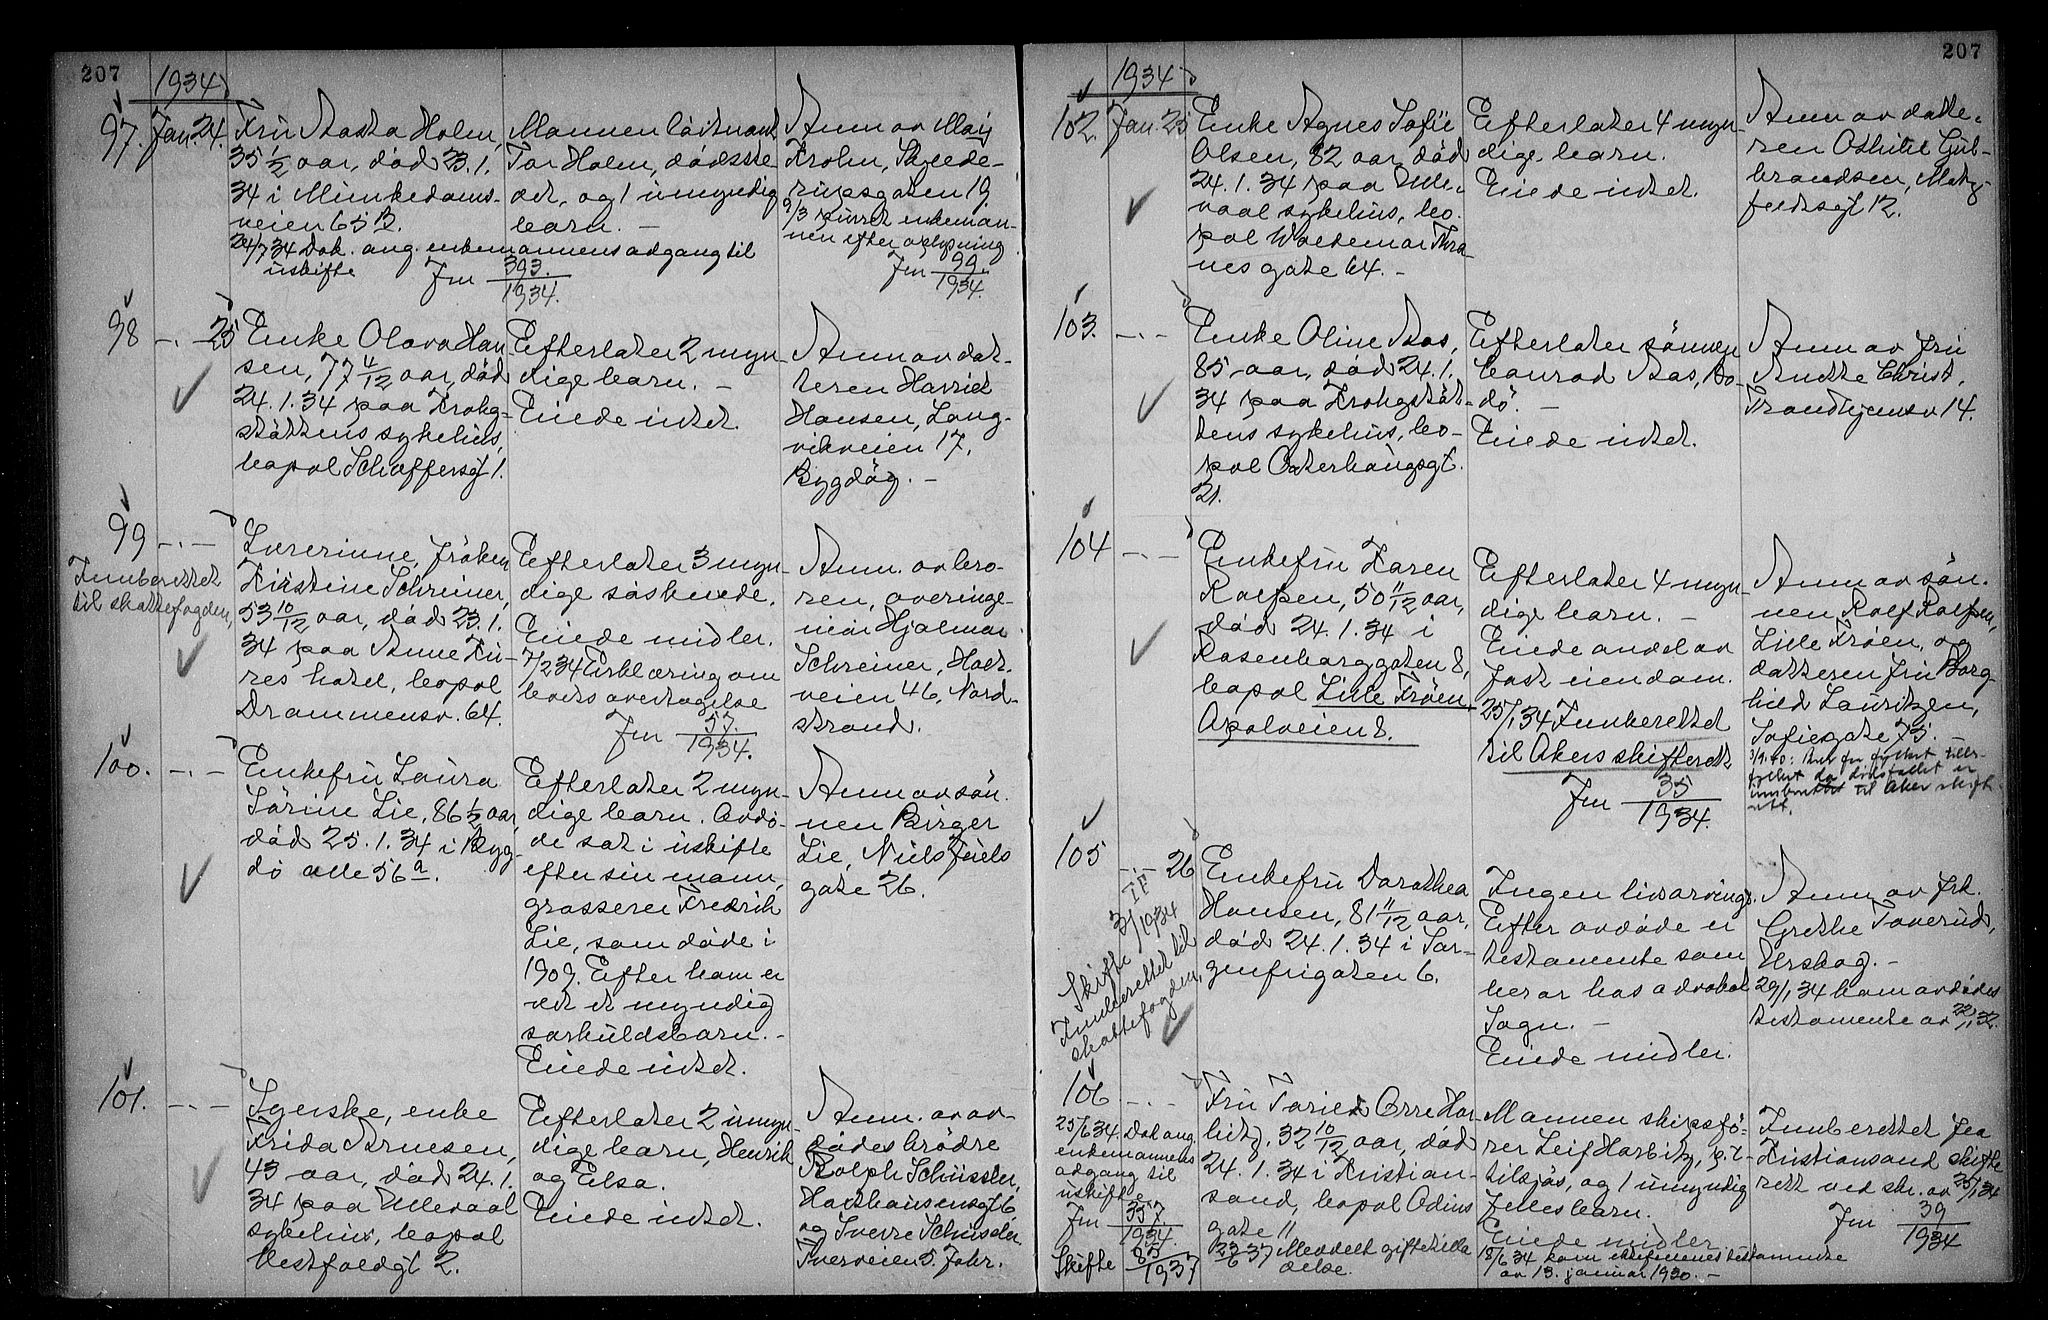 207
1934
97. Jan. 24.
Fru Aasta Holm,
35 1/2 aar, död 23.1.
34 i Munkedams-
veien 65 B.
Mannen löitnant
Tor Holm, dödsste-
det, og 1 umyndig
barn. –
Anm av Maij
Krohn, Skovve-
ringsgaten 19.
9/3 purret enkeman-
nen efter oplysning
Jnr 99/1934.
24/7 34 Dok. ang. enkemannens adgang til
uskifte Jnr 393./1934.
98 -.- 25
Enke Olava Han-
sen, 77 4/12 aar, död
24.1.34 paa Krohg-
støttens sykehus,
bopel Schæffersgt 1.
Efterlater 2 myn-
dige barn. –
Eiede intet.
Anm av dat-
teren Harriet
Hansen, Lang-
vikveien 17,
Bygdög. –
99 -.-
Innberettet
til skattefogden,
Lærerinne, fröken
Kirstine Schreiner,
53 10/12 aar, död 23.1.
34 paa Anne Ku-
res hotel, bopel
Drammensv. 64.
Efterlater 3 myn-
dige söskende.
Eiede midler.
7/2 34 Erklæring om
boets overtagelse
Jnr 57./1934.
Anm. av bro-
ren, overinge-
niør Hjalmar
Schreiner, Holt-
veien 46, Nord-
strand.
100. -.-
Enkefru Laura
Sörine Lie, 86 1/2 aar,
död 25.1.34 i Byg-
dö alle 56 a.
Efterlater 2 myn-
dige barn. Avdö-
de sat i uskifte
efter sin mann,
grosserer Fredrik
Lie, som döde i
1909. Efter ham er
det et myndig
særkuldsbarn. –
Eiede intet.
Anm av søn-
nen Birger
Lie, Niels Juels
gate 26.
101. -.-
Syerske, enke
Frida Arnesen,
43 aar, död 24.1.
34 paa Ullevaal
sykehus, bopel
Vestfoldgt 2.
Efterlater 2 umyn-
dige barn, Henrik
og Elsa.
Eiede intet.
Anm. av av-
dödes brödre
Rolph Schüssler,
Harthausensgt 6
og Sverre Schüssler
Tverveien 5. Jahr.
207
1934
102. Jan. 25
Enke Agnes Sofie
Olsen, 82 aar, död
24.1.34 paa Ulle-
vaal sykehus, bo-
pel Waldemar Thra-
nes gate 64. –
Efterlater 4 myn-
dige barn.
Eiede intet.
Anm av datte-
ren Othilie Gul-
brandsen, Maty-
feldtsgt 12.
103. -.-
Enke Oline Aas,
85 aar, död 24.1.
34 paa Krohgstöt-
tens sykehus, bo-
pel Osterhausgt.
21.
Efterlater sönnen
Conrad Aas, Bo-
dö. –
Eiede intet.
Anm av fru
Anette Christ,
Trondhjemsv 14.
104 -.-
Enkefru Karen
Rolfsen, 50 11/12 aar,
död 24.1.34 i
Rosenborggaten 8,
bopel Lille Fröen,
Apalveien 8.
Efterlater 4 myn-
dige barn. –
Eiede andel av
fast eiendom.
25/1 34 Innberettet
til Akers skifterett
Jnr 35/1934.
Anm av sön-
nen Rolf Rolfsen,
Lille Fröen, og
datteren fru Borg-
hild Lauritzen,
Sofiegate 75. –
innberettet til Aker skift-
rett.
105 -.- 26
Skifte 3/1934
Innberettet til
skattefogden,
Enkefru Dorothea
Hansen, 81 11/12 aar,
död 24.1.34 i Sor-
genfrigaten 6.
Ingen livsarving.
Efter avdöde er
testamente som
beror hos advokat
Sogn. –
Eiede midler.
Anm av frk.
Grethe Toverud,
Urskog. –
29/1 34 kom avdödes
testamente av 22/1 32.
106 -.-
25/6 34. Dok ang.
enkemannens
adgang til
uskifte
Jnr 357/1934.
Skifte 83/1937
Fru Torild Orre Har-
bitz, 32 10/12 aar, död
24.1.34 i Kristian-
sand, bopel Odins
gate 11
23/6 37 Meddelt giftetilla-
delse.
Mannen skipsfö-
rer Leif Harbitz, p.t.
tilsjös, og 1 umyndig
fellesbarn.
Eiede midler
18/6 34 kom ektefellenes testamente
av 13. januar 1930. –
Innberettet fra
Kristiansand skifte-
rett ved skr. av 25/1 34
Jnr 39/1934